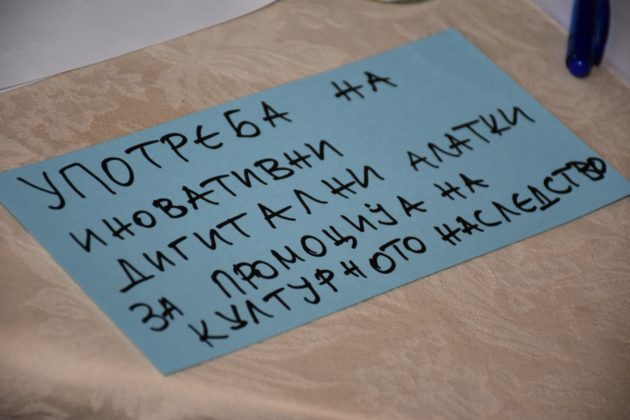 УПОТРЕБА НА
ИНОВАТИВНИ
ДИГИТАЛНИ АЛАТКИ
ЗА ПРОМОЦИЈА НА
КУЛТУРНОТО НАСЛЕДСТВО